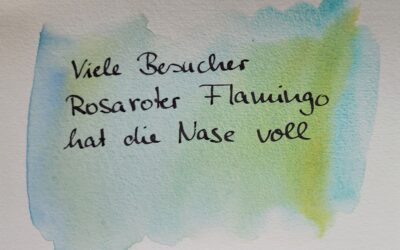 Viele Besucher
Rosaroter Flamingo
hat die Nase voll